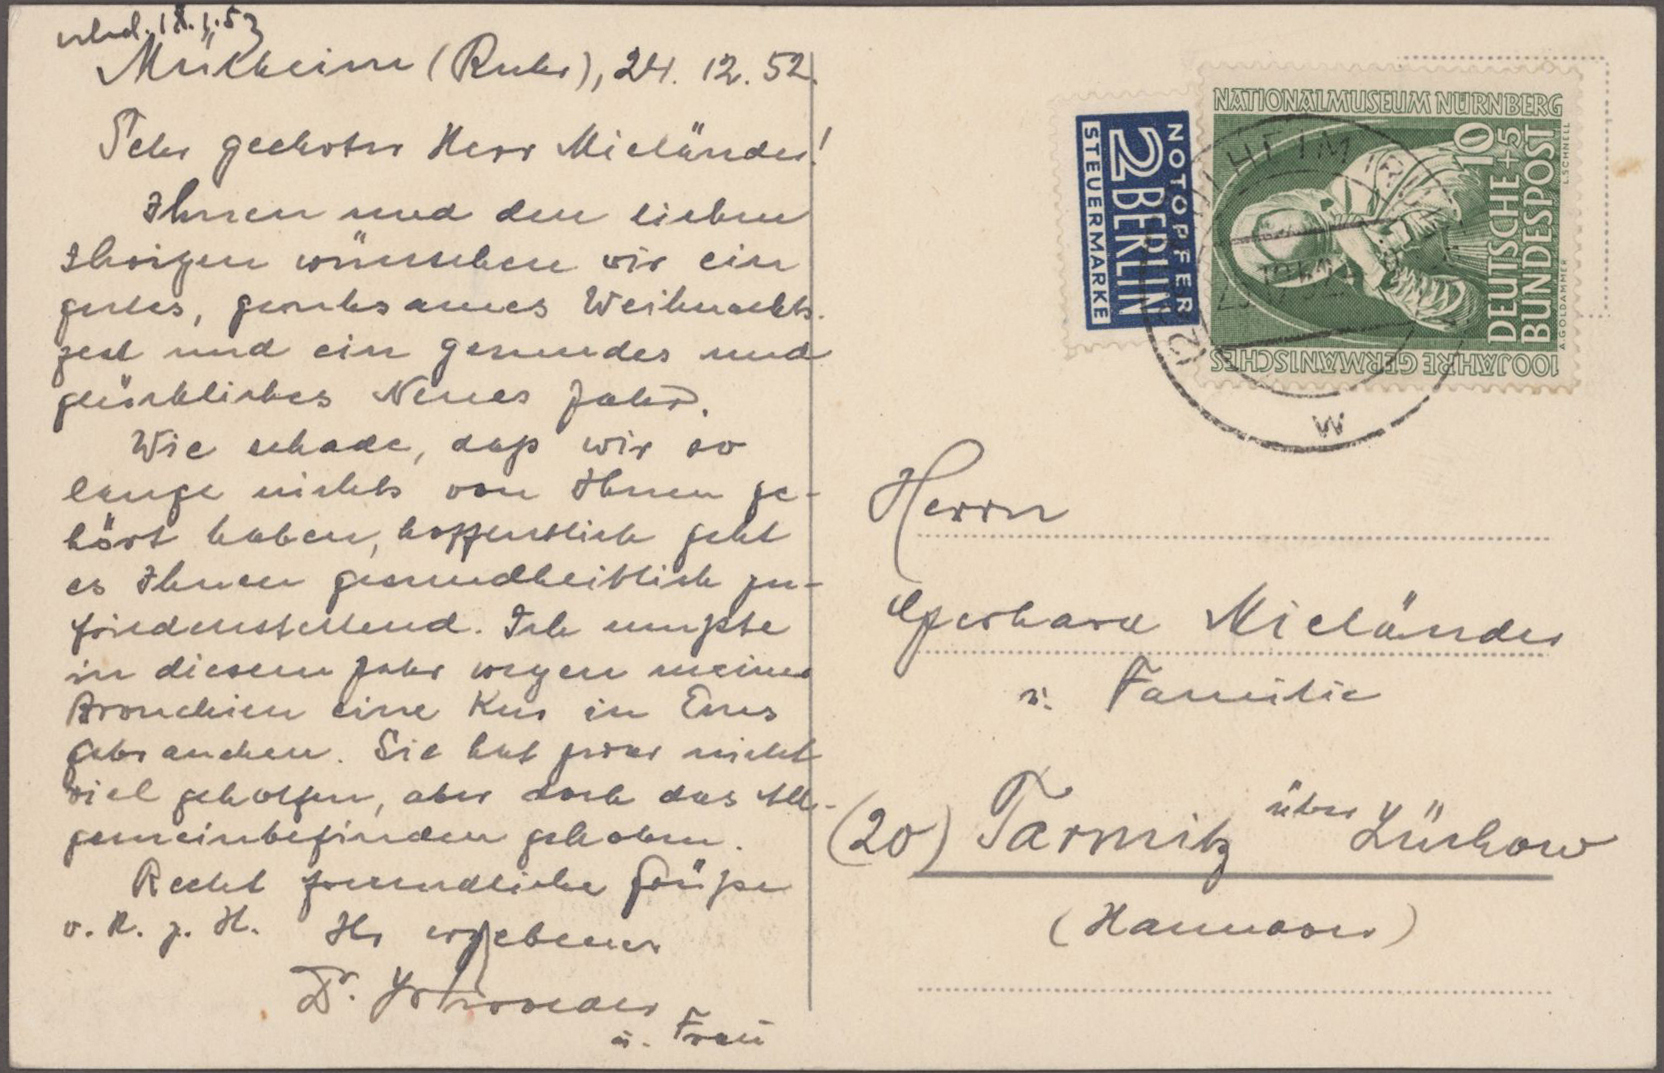 18.1.53
Mülheim (Ruhr), 24. 12. 52.
Sehr geehrter Herr Mieländer!
Ihnen und den lieben
Ihrigen wünschen wir ein
gutes, geruhsames Weihnachts-
fest und ein gesundes und
glückliches Neues Jahr.
Wie schade, daß wir so
lange nichts von Ihnen ge-
hört haben, hoffentlich geht
es Ihnen gesundheitlich zu-
friedenstellend. Ich mußte
in diesem Jahr wegen meiner
Bronchien eine Kur in Ems
gebrauchen. Sie hat zwar nicht
viel geholfen, aber doch das All-
gemeinbefinden gehoben.
Recht freundliche Grüße
v. H. z. H. Ihr ergebener
Dr.
u. Frau
NOTOPFER
2 BERLIN
STEUERMARKE
NATIONALMUSEUM NÜRNBERG
10+5
DEUTSCHE
BUNDESPOST
100 JAHRE GERMANISCHES
L.SCHNELL
A.GOLDAMMER
W
Herrn
Gerhard Mieländer
u. Familie
(20) Tarmitz über Lüchow
(Hannover)